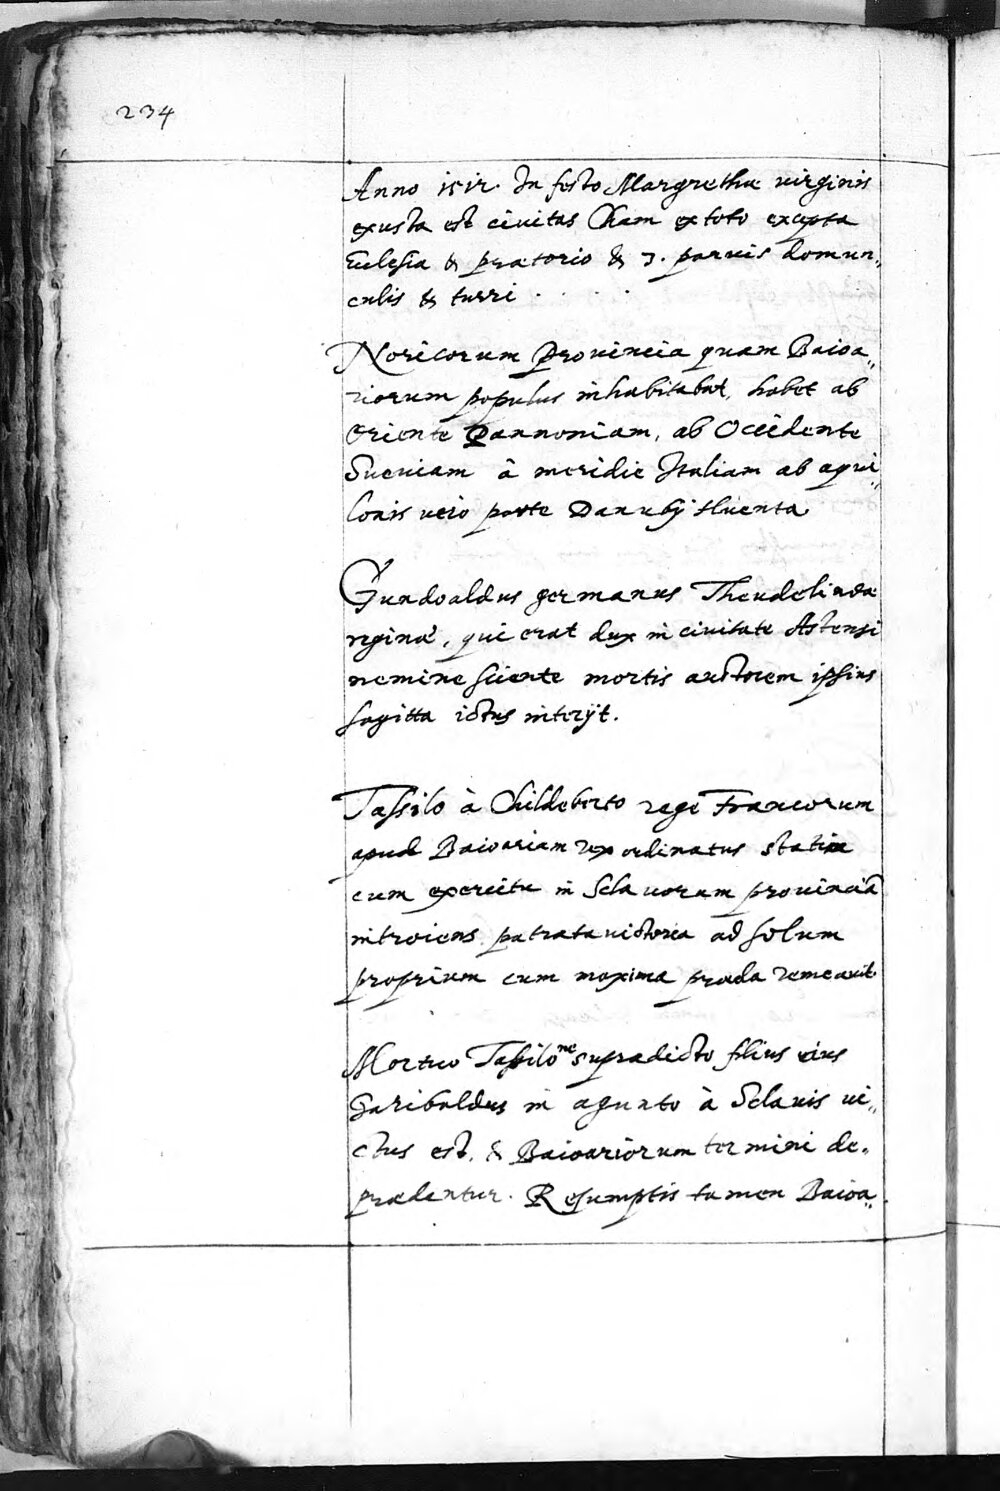 234
Anno 1512. In festo Margrethæ virginis
exusta est ciuitas Cham ex toto excepta
Ecclesia & prætorio & 3. paruis domun„
culis & turri . . .
Noricorum Prouincia quam Baioa„
riorum populus inhabitabat, habet ab
Oriente Pannoniam, ab Occidente
Sueuiam à meridie Italiam ab aqui„
lonis uero parte Danubij fluenta
Gundoaldus germanus Theudelindæ
reginæ, qui erat dux in ciuitate Astensi
nemine sciente mortis auctorem ipsius
sagitta ictus interijt.
Tassilo à Childeberto rege Francorum
apud Baioariam rex ordinatus statim
cum exercitu in Sclauorum prouinciã
introiens patrata uictoria ad solum
proprium cum maxima præda remeauit
Mortuo Tassilone supradicto filius eius
Garibaldus in agunto à Sclauis ui„
ctus est, & Baioariorum termini de„
prædentur. Resumptis tamen Baioa„